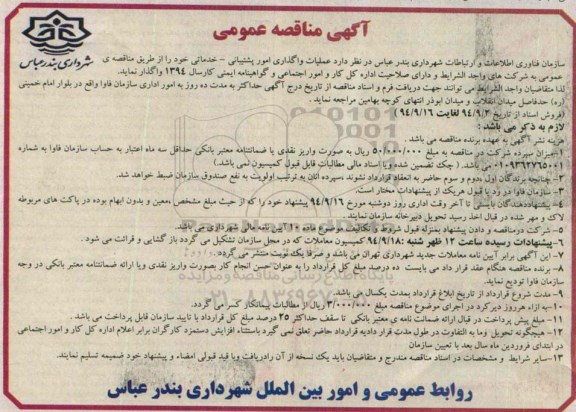 آگهی مناقصه عمومی
شهرداری بندرعباس
سازمان فناوری اطلاعات و ارتباطات شهرداری بندر عباس در نظر دارد عملیات واگذاری امور پشتیبانی - خدماتی خود را از طریق مناقصه ی
عمومی به شرکت های واجد الشرایط و دارای صلاحیت اداره کل کار و امور اجتماعی و گواهینامه ایمنی کارسال ۱۳۹۴ واگذار نماید.
لذا متقاضیان واجد الشرایط می توانند جهت دریافت فرم و اسناد مناقصه از تاریخ درج آگهی حداکثر به مدت ده روز به امور اداری سازمان فاوا واقع در بلوار امام خمینی
(ره) حدفاصل میدان انقلاب و میدان ابوذر انتهای کوچه بهامین مراجعه نماید .
(فروش اسناد از تاریخ ۹۴/۹/۳ لغایت ۹۴/۹/۱۶ )
لازم به ذکر می باشد :
هزینه نشر آگهی به عهده برنده مناقصه می باشد .
۱-میزان سپرده شرکت در مناقصه به مبلغ ۵۰/۰۰۰/۰۰۰ ریال به صورت واریز نقدی یا ضمانتنامه معتبر بانکی حداقل سه ماه اعتبار به حساب سازمان فاوا به شماره
می باشد . ( چک تضمین شده و یا اسناد مالی مطالبات قابل قبول کمیسیون نمی باشد.)
۲- چنانچه برندگان اول ودوم و سوم حاضر به انعقاد قرارداد نشوند ،سپرده آنان به ترتیب اولویت به نفع صندوق سازمان ضبط خواهد شد.
۳- سازمان فاوا در رد یا قبول هریک از پیشنهادات مختار است.
۴- پیشنهاددهندگان بایستی تا آخر وقت اداری روز دوشنبه مورخ ۹۴/۹/۱۶ پیشنهاد خود را که از حیث مبلغ مشخص ،معین و بدون ابهام بوده در پاکت های مربوطه
لاک و مهر شده در قبال اخذ رسید تحویل دبیرخانه سازمان نمایند.
۵- شرکت درمناقصه و دادن پیشنهاد بمنزله قبول شروط و تکالیف موضوع ماده ۱۰ آیین نامه مالی شهرداری می باشد.
۶- پیشنهادات رسیده ساعت ۱۲ ظهر شنبه ۹۴/۹/۱۸: کمیسیون معاملات که در محل سازمان تشکیل می گردد باز گشایی و قرائت می شود .
۷- این آگهی برابر آیین نامه معاملات جدید شهرداری تهران می باشد و صرفا یک نوبت منتشر می گردد.
۸- برنده مناقصه هنگام عقد قرار داد می بایست ده درصد مبلغ کل قرارداد را به عنوان حسن انجام کار بصورت واریز نقدی ویا ارائه ضمانتنامه معتبر بانکی در وجه
سازمان فاوا تودیع نماید.
۹- مدت شروع قرارداد از تاریخ ابلاغ قرارداد بمدت یکسال می باشد.
۱۰-به ازاء هرروز دیرکرد در اجرای موضوع مناقصه مبلغ ۳/۰۰۰/۰۰۰ ریال از مطالبات پیمانکار کسر می گردد.
۱۱- مبلغ پیش پرداخت در قبال ارائه ضمانت نامه ی معتبر بانکی تا سقف حداکثر ۲۵ درصد مبلغ کل قرارداد با تایید سازمان قابل پرداخت می باشد .
۱۲- هیچگونه تحویل وما به التفاوت در طول مدت قرار دادبه قرارداد حاضر تعلق نمی گیرد باستثناء افزایش دستمزد کارگران برابر اعلام اداره کل کار و امور اجتماعی
در ابتدای فروردین ماه سال بعد با تعیین سازمان
۱۳-سایر شرایط و مشخصات در اسناد مناقصه مندرج و متقاضیان باید یک نسخه از آن رادریافت وبا قید قبولی امضاء و پیشنهاد خود ضمیمه تسلیم نمایند.
روابط عمومی و امور بین الملل شهرداری بندر عباس